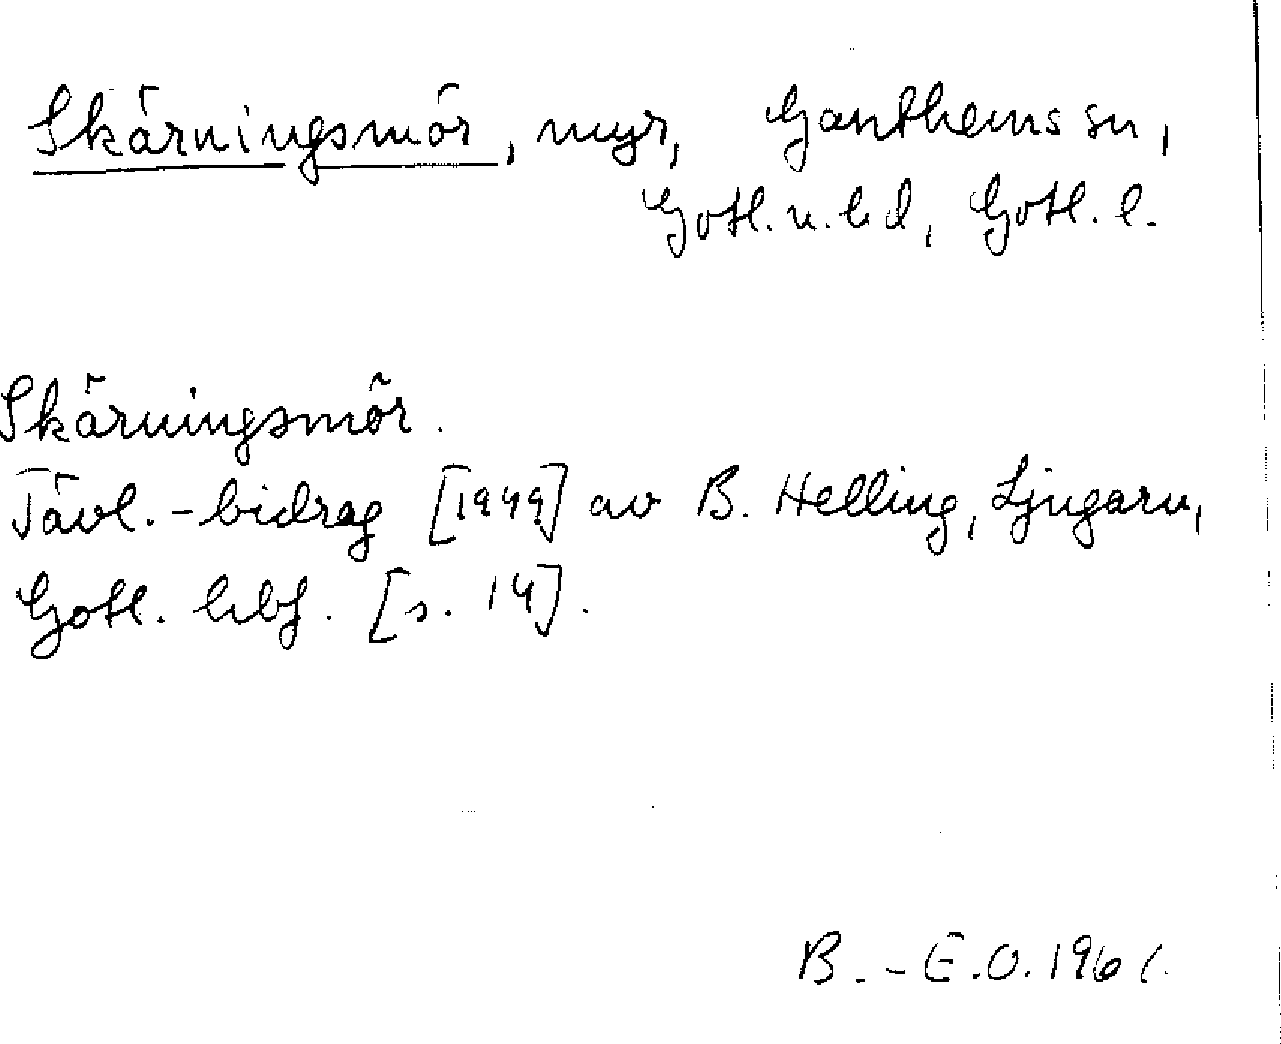 Skärningsmör, myr, Ganthems sn,
Gotl. n. hd, Gotl. l.
Skärningsmör.
Tävl.-bidrag [1949] av B. Helling, Ljugarn,
Gotl. hbf. [s. 14].
B.-E.O. 1961.